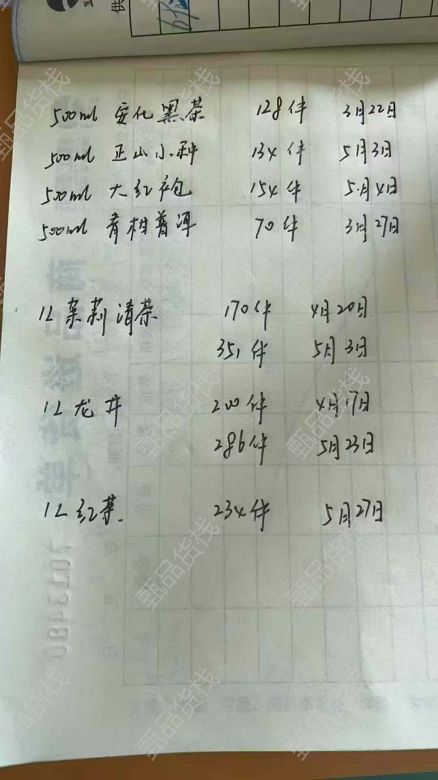 500ml 安化黑茶 128件 3月22日
500ml 正山小种 134件 5月3日
500ml 大红袍 154件 5月4日
500ml 青柑普洱 70件 3月27日
1L 茉莉清茶 170件 4月20日
351件 5月3日
1L 龙井 200件 4月17日
286件 5月23日
1L 红茶 234件 5月27日
甄品货栈
7013480